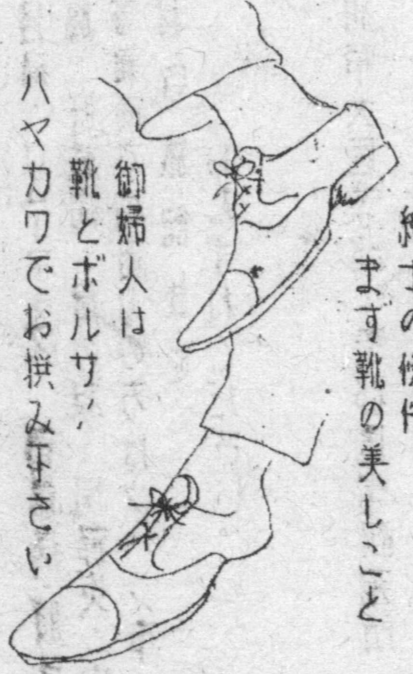 紳士の條件
まず靴の美しこと
御婦人は
靴とボルサ、
ハヤカワでお撰み下さい